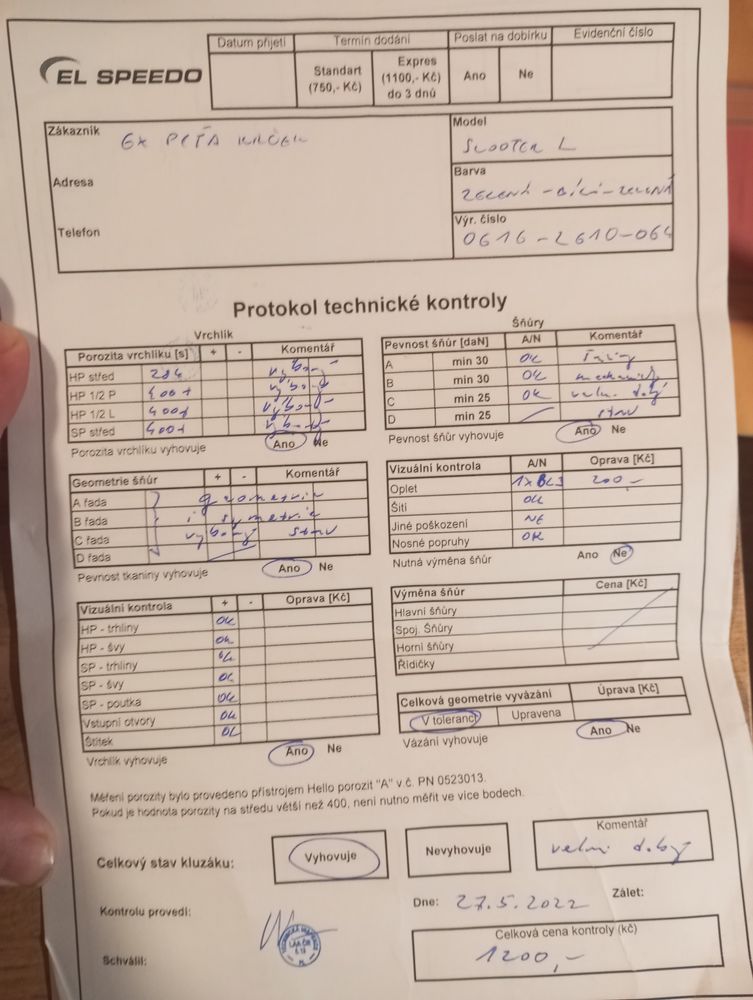 EL SPEEDO
Datum přijetí
Termín dodání
Poslat na dobírku
Evidenční číslo
Standart (750,- Kč)
Expres (1100,- Kč) do 3 dnů
Ano
Ne
Zákazník
Adresa
Telefon
Model
SCOOTER L
Barva
ZELENÁ - BÍLÁ - ZELENÁ
Výr. číslo
0616-2610-064
Protokol technické kontroly
Vrchlík
Porozita vrchlíku [s] + - Komentář
HP střed 284 výborý
HP 1/2 P 400+ výborý
HP 1/2 L 400+ výborý
SP střed 400+ výborý
Porozita vrchlíku vyhovuje Ano Ne
Šňůry
Pevnost šňůr [daN] A/N Komentář
A min 30 OK
B min 30 OK mechanicky
C min 25 OK velmi dobrý
D min 25 stav
Pevnost šňůr vyhovuje Ano Ne
Geometrie šňůr + - Komentář
A řada geometrie
B řada i symetrie
C řada výborný stav
D řada
Pevnost tkaniny vyhovuje Ano Ne
Vizuální kontrola A/N Oprava [Kč]
Oplet 200,-
Šití OK
Jiné poškození NE
Nosné popruhy OK
Nutná výměna šňůr Ano Ne
Vizuální kontrola + - Oprava [Kč]
HP - trhliny OK
HP - švy OK
SP - trhliny OK
SP - švy OK
SP - poutka OK
Vstupní otvory OK
Štítek OK
Vrchlík vyhovuje Ano Ne
Výměna šňůr Cena [Kč]
Hlavní šňůry
Spoj. Šňůry
Horní šňůry
Řidičky
Celková geometrie vyvázání Úprava [Kč]
V toleranci Upravena
Vázání vyhovuje Ano Ne
Měření porozity bylo provedeno přístrojem Hello porozit "A" v.č. PN 0523013.
Pokud je hodnota porozity na středu větší než 400, není nutno měřit ve více bodech.
Celkový stav kluzáku: Vyhovuje Nevyhovuje
Komentář
velmi dobrý
Kontrolu provedl:
Dne: 27.5.2022 Zálet:
Schválil:
Celková cena kontroly (kč)
1200,-